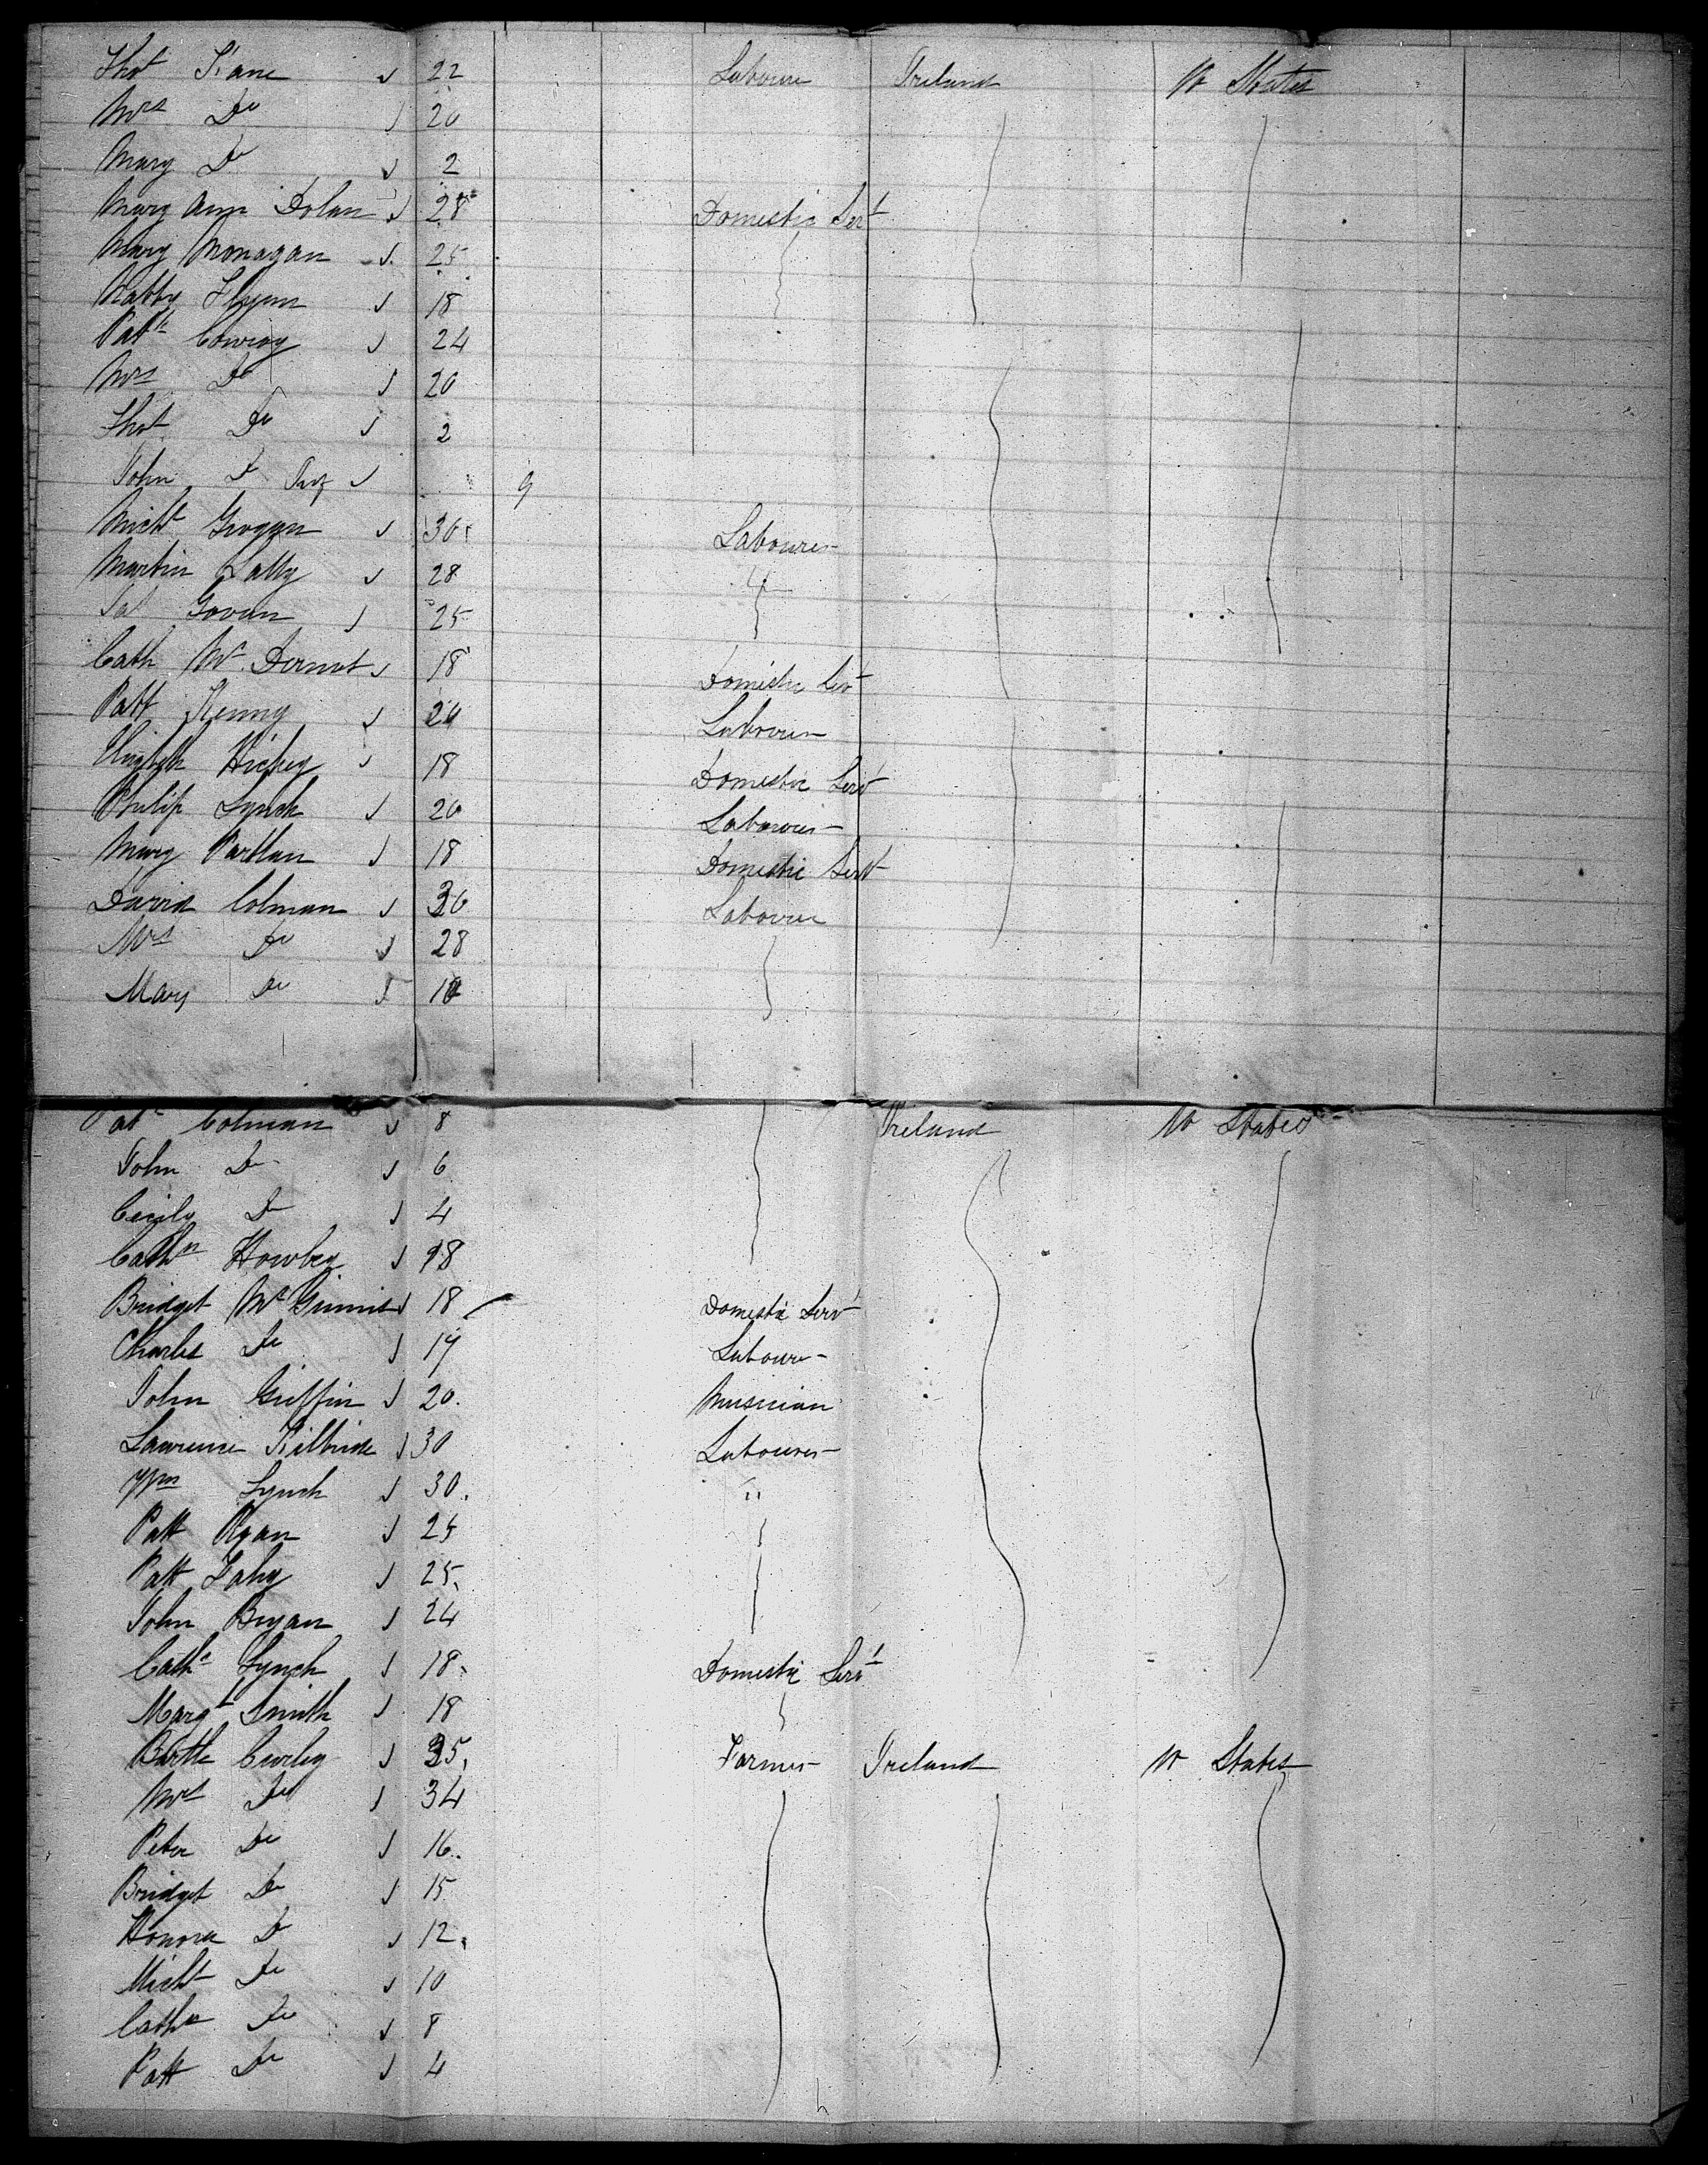 Thos Kane 22 Labourer Ireland U States
Mrs Do 20
Mary Do 2
Mary Ann Dolan 28 Domestic Servt
Mary Monagan 25
Nabby Flynn 18
Patk Conroy 24
Mrs Do 20
Thos Do 2
John Do Inf 9
Michl Grogan 30 Labourer
Martin Lally 28 "
Pat Govan 25
Cath McDermot 18 Domestic Servt
Patt Kenny 20 Labourer
Hickey 18 Domestic Servt
Philip Lynch 20 Labourer
Mary Partlan 18 Domestic Servt
David Colman 30 Labourer
Mrs Do 28
Mary Do 10
Pat Colman 8 Ireland U States
John Do 6
Cecily Do 4
Cathn Howley 18
Bridget McGinnis 18 Domestic Servt
Charles Do 17 Labourer
John Griffin 20 Musician
Lawrence Kilbride 30 Labourer
Wm Lynch 30 "
Patt Ryan 25
Patt Fahy 25
John Bryan 24
Cathe Lynch 18 Domestic Servt
Margt Smith 18
Barth Curley 35 Farmer Ireland U States
Mrs Do 34
Peter Do 16
Bridget Do 15
Honora Do 12
Michl Do 10
Cathn Do 8
Patt Do 4